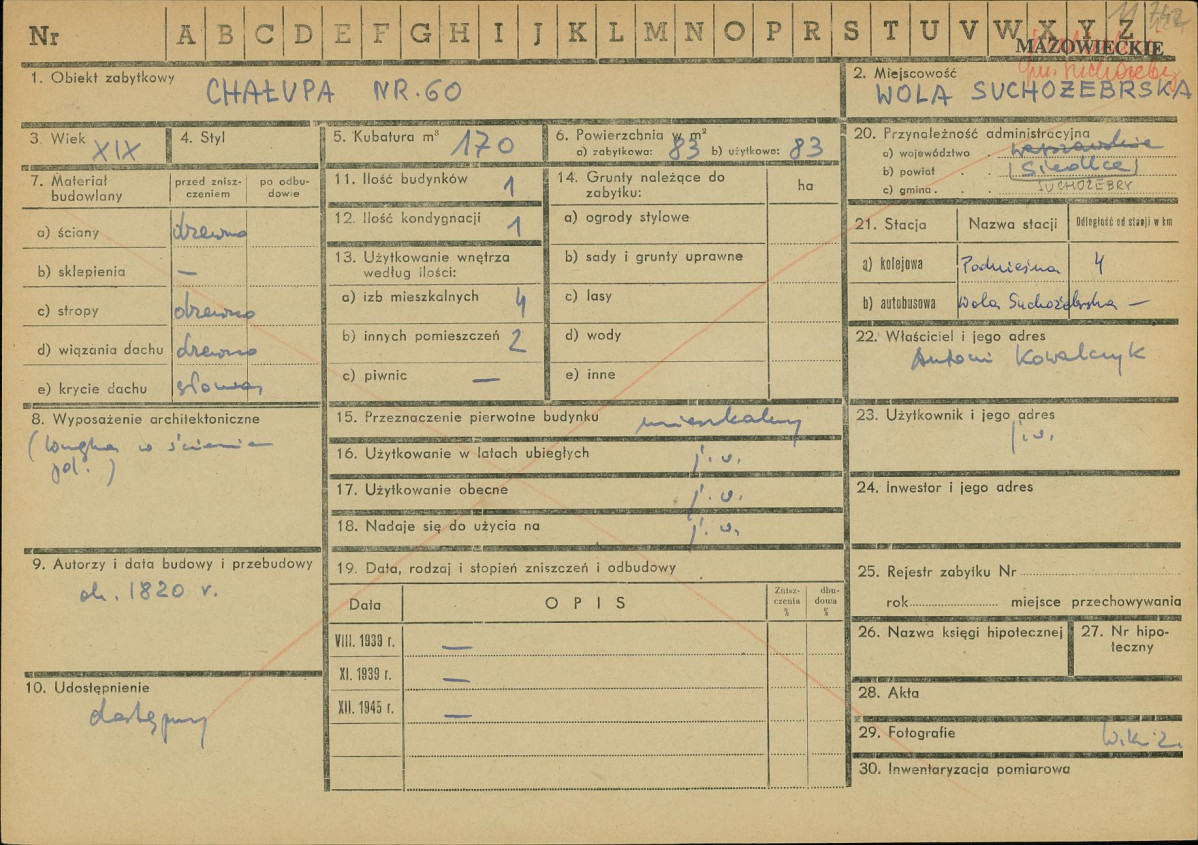 Nr A B C D E F G H I J K L M N O P R S T U V W X Y Z
MAZOWIECKIE
1. Obiekt zabytkowy
CHAŁUPA NR. 60
2. Miejscowość
WOLA SUCHOŻEBRSKA
3. Wiek XIX
4. Styl
5. Kubatura m³ 170
6. Powierzchnia w m²
a) zabytkowa: 83 b) użytkowa: 83
20. Przynależność administracyjna
a) województwo warszawskie
b) powiat Siedlce
c) gmina SUCHOŻEBRY
7. Materiał budowlany
przed zniszczeniem
po odbudowie
a) ściany drewno
b) sklepienia —
c) stropy drewno
d) wiązania dachu drewno
e) krycie dachu słoma
11. Ilość budynków 1
12. Ilość kondygnacji 1
13. Użytkowanie wnętrza
według ilości:
a) izb mieszkalnych 4
b) innych pomieszczeń 2
c) piwnic —
14. Grunty należące do
zabytku:
ha
a) ogrody stylowe
b) sady i grunty uprawne
c) lasy
d) wody
e) inne
21. Stacja Nazwa stacji Odległość od stacji w km
a) kolejowa Podnieśna 4
b) autobusowa Wola Suchożebrska —
22. Właściciel i jego adres
Antoni Kowalczyk
8. Wyposażenie architektoniczne
w ścianie
9. Autorzy i data budowy i przebudowy
ok. 1820 r.
10. Udostępnienie
dostępny
15. Przeznaczenie pierwotne budynku mieszkalny
16. Użytkowanie w latach ubiegłych j. w.
17. Użytkowanie obecne j. w.
18. Nadaje się do użycia na j. w.
19. Data, rodzaj i stopień zniszczeń i odbudowy
Data OPIS Zniszczenia % dbudowa %
VIII. 1939 r. —
XI. 1939 r. —
XII. 1945 r. —
23. Użytkownik i jego adres
j. w.
24. Inwestor i jego adres
25. Rejestr zabytku Nr
rok miejsce przechowywania
26. Nazwa księgi hipotecznej
27. Nr hipoteczny
28. Akta
29. Fotografie
30. Inwentaryzacja pomiarowa